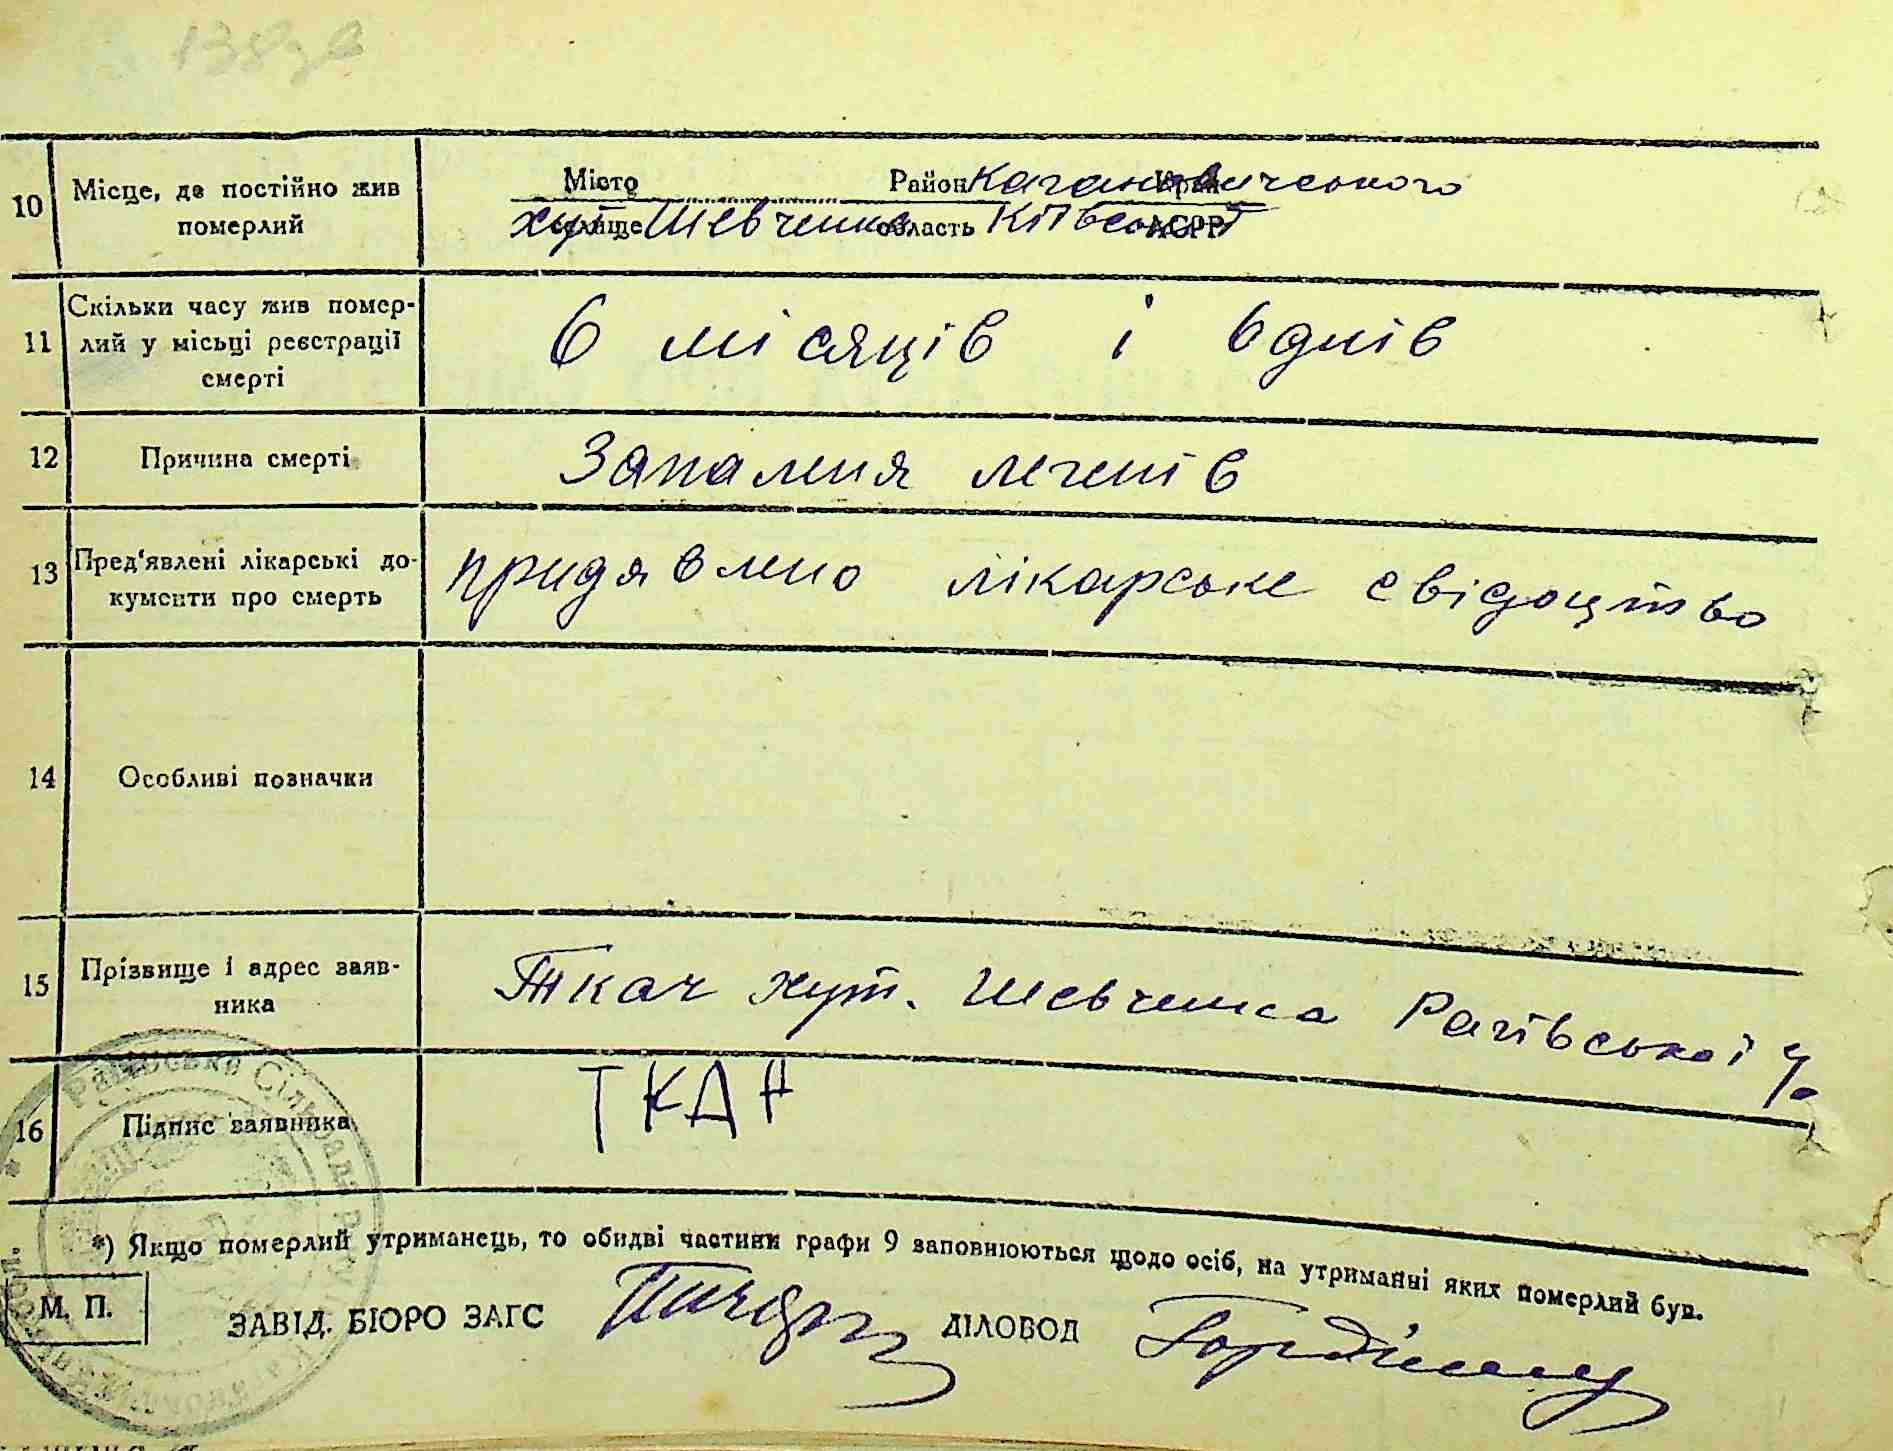 10 Місце, де постійно жив померлий
Місто Район Кагановичського
хут Шевченка область Київської
11 Скільки часу жив помер-
лий у місьці реєстрації
смерті
6 місяців і 6 днів
12 Причина смерті
Запалння легенів
13 Пред'явлені лікарські до-
кументи про смерть
придявлено лікарське свідоцтво
14 Особливі позначки
15 Прізвище і адрес заяв-
ника
Ткач хут. Шевченка Рагівської
16 Підпис заявника
ТКАЧ
*) Якщо померлий утриманець, то обидві частини графи 9 заповнюються щодо осіб, на утриманні яких померлий був.
М. П.
ЗАВІД. БЮРО ЗАГС ДІЛОВОД